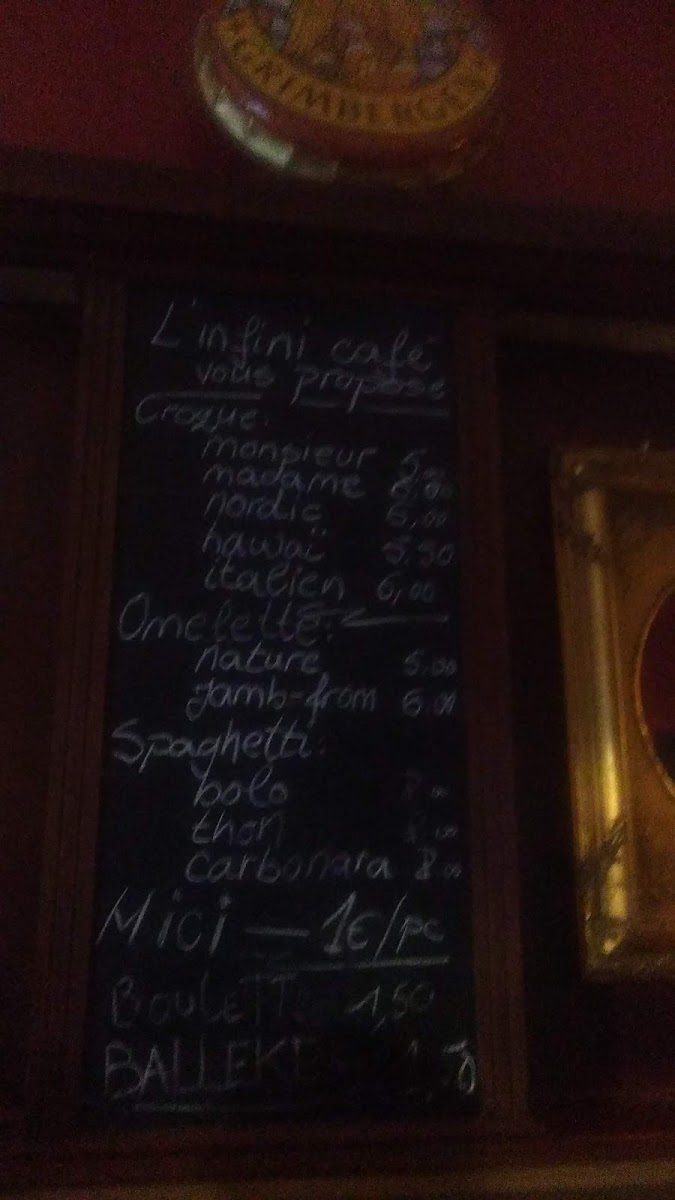 GRIMBERGEN
L'infini café
vous propose
Croque:
monsieur 5,
madame
nordic 6,00
hawaï 5.50
italien 6,00
Omelette:
nature 5.00
Jamb-from 6.00
Spaghetti:
bolo
thon
carbonara 8.00
Mici — 1€/pc
BOULETTE 1,50
BALLEKE